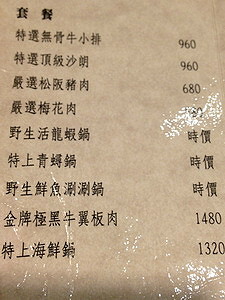 套餐
特選無骨牛小排 960
特選頂級沙朗 960
嚴選松阪豬肉 680
嚴選梅花肉
野生活龍蝦鍋 時價
特上青蟳鍋 時價
野生鮮魚涮涮鍋 時價
金牌極黑牛翼板肉 1480
特上海鮮鍋 1320